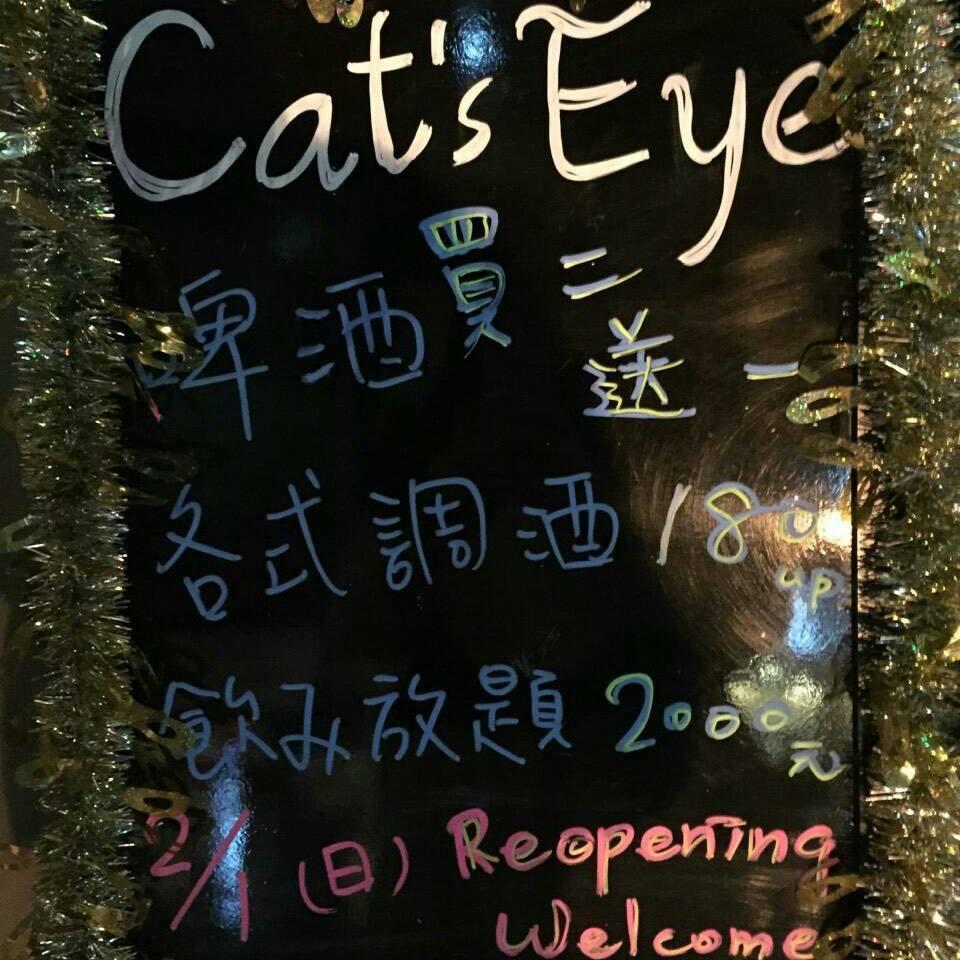 Cat's Eye
啤酒買二送一
各式調酒 180 up
飲み放題 2000元
2/1 (日) Reopening
Welcome